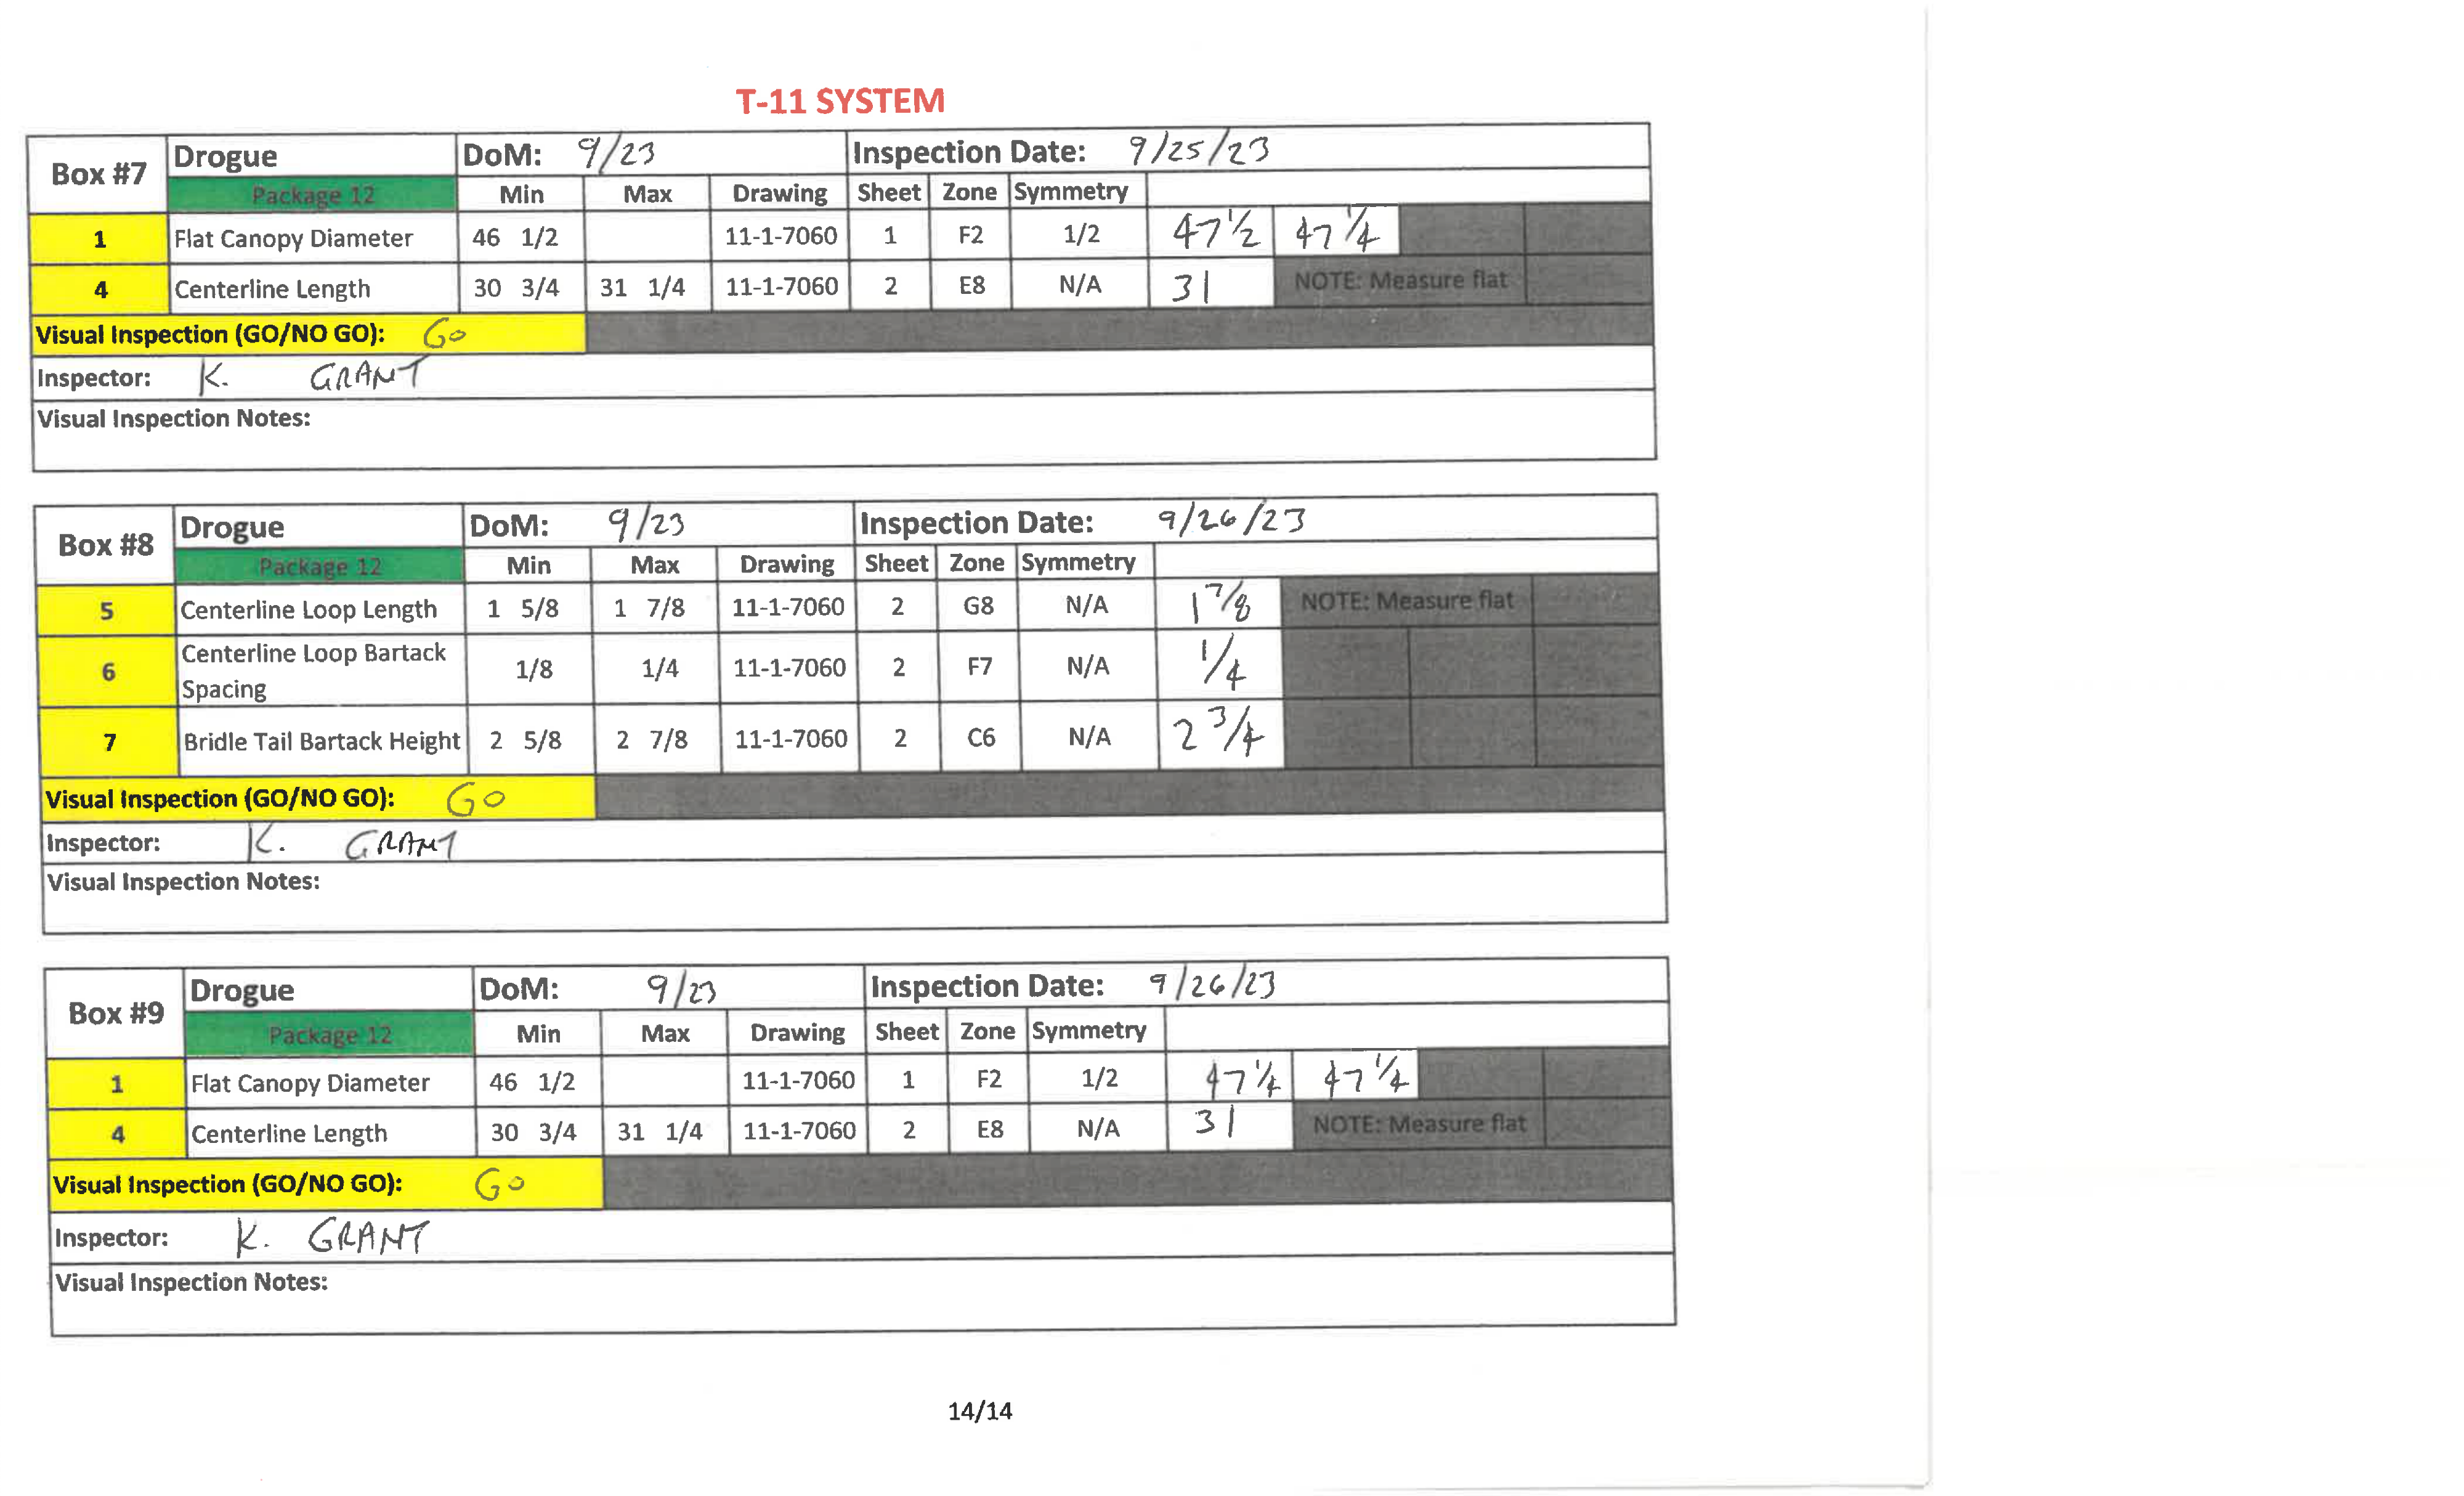 T-11 SYSTEM
Box #7 Drogue DoM: 9/23 Inspection Date: 9/25/23
Package 12 Min Max Drawing Sheet Zone Symmetry
1 Flat Canopy Diameter 46 1/2 11-1-7060 1 F2 1/2 47 1/2 47 1/4
4 Centerline Length 30 3/4 31 1/4 11-1-7060 2 E8 N/A 31 NOTE: Measure flat
Visual Inspection (GO/NO GO): GO
Inspector: K. GRANT
Visual Inspection Notes:
Box #8 Drogue DoM: 9/23 Inspection Date: 9/26/23
Package 12 Min Max Drawing Sheet Zone Symmetry
5 Centerline Loop Length 1 5/8 1 7/8 11-1-7060 2 G8 N/A 1 7/8 NOTE: Measure flat
6 Centerline Loop Bartack Spacing 1/8 1/4 11-1-7060 2 F7 N/A 1/4
7 Bridle Tail Bartack Height 2 5/8 2 7/8 11-1-7060 2 C6 N/A 2 3/4
Visual Inspection (GO/NO GO): GO
Inspector: K. GRANT
Visual Inspection Notes:
Box #9 Drogue DoM: 9/23 Inspection Date: 9/26/23
Package 12 Min Max Drawing Sheet Zone Symmetry
1 Flat Canopy Diameter 46 1/2 11-1-7060 1 F2 1/2 47 1/4 47 1/4
4 Centerline Length 30 3/4 31 1/4 11-1-7060 2 E8 N/A 31 NOTE: Measure flat
Visual Inspection (GO/NO GO): GO
Inspector: K. GRANT
Visual Inspection Notes:
14/14